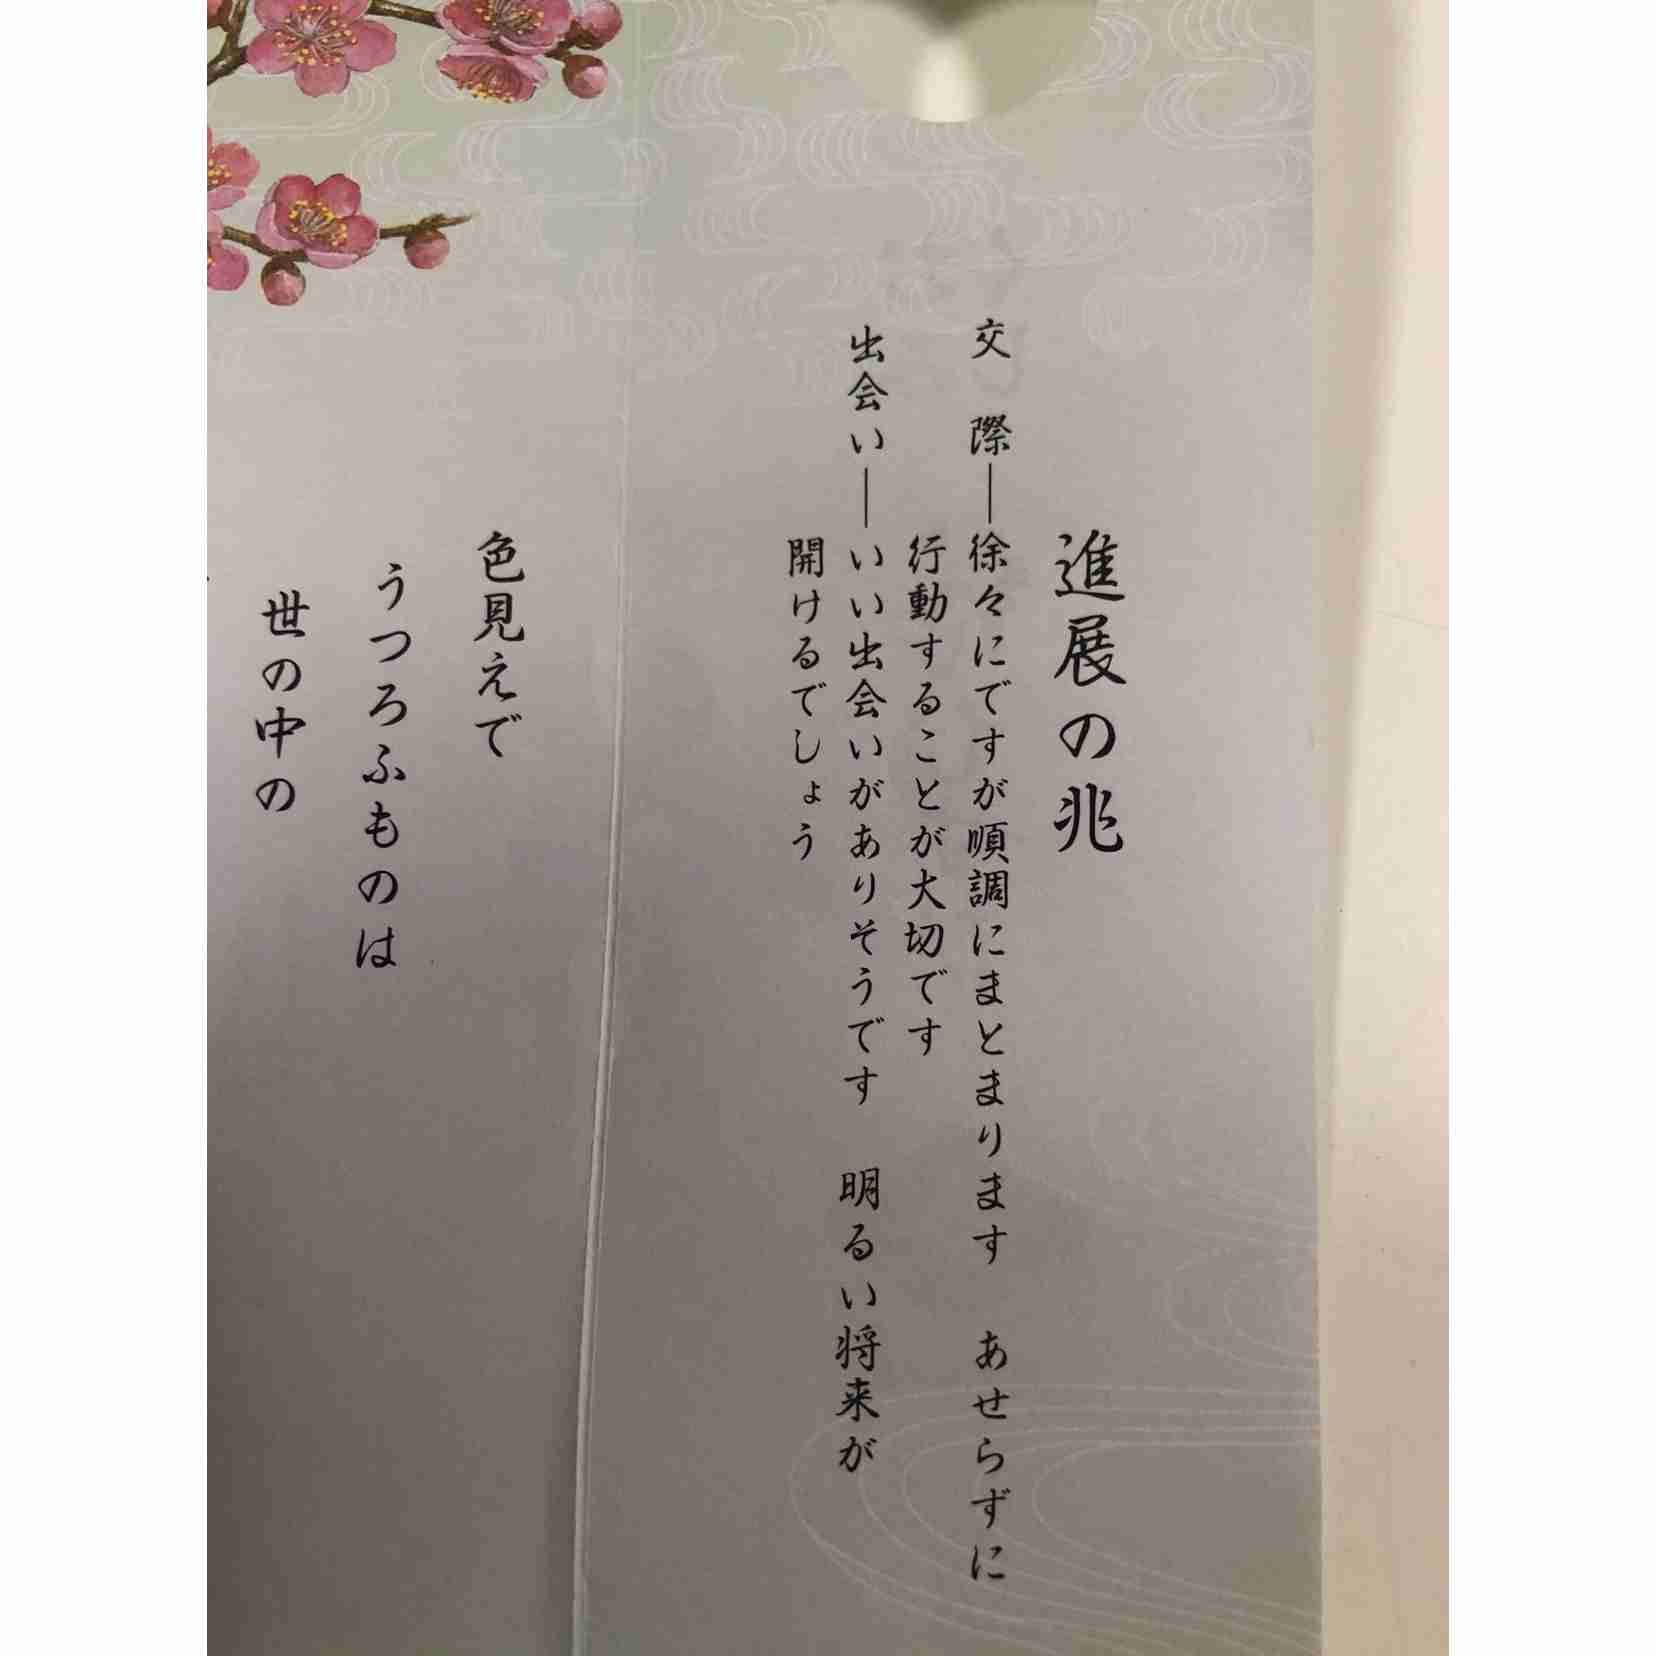 進展の兆
交　際―徐々にですが順調にまとまります　あせらずに
行動することが大切です
出会い―いい出会いがありそうです　明るい将来が
開けるでしょう
色見えで
うつろふものは
世の中の